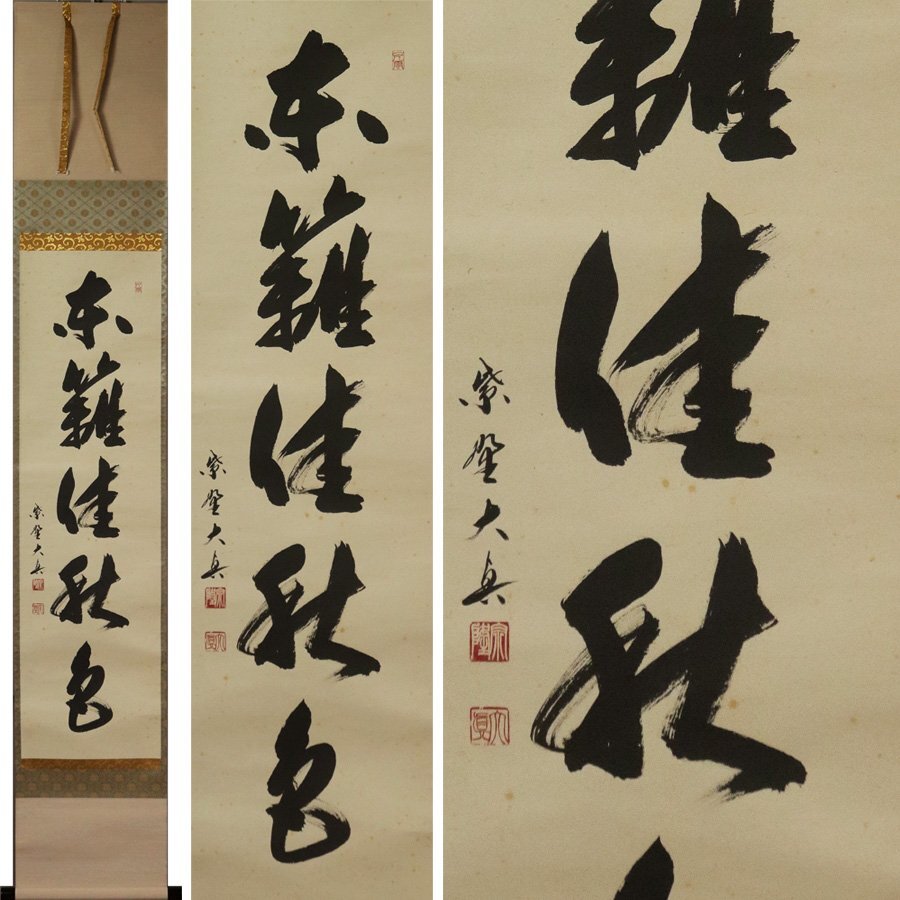 東籬佳秋色
紫埜大真
東籬佳秋色
紫埜大真
籬佳秋
紫埜大真